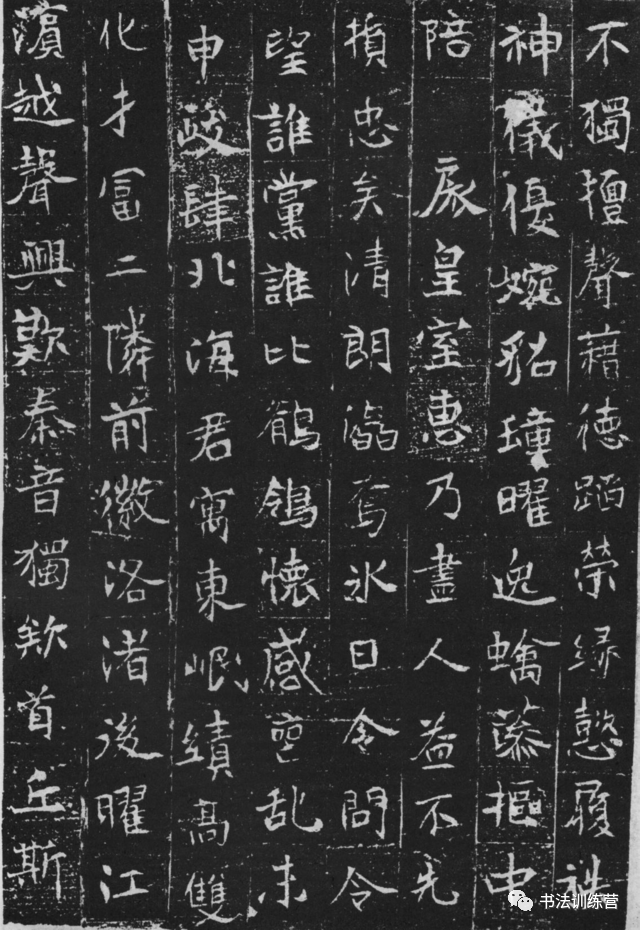 不獨擅聲藉德蹈榮緣懿履
神儀優婉貂曜逸樞中
陪皇室惠乃盡人益不先
損忠矣清朗冰日令問令
望誰黨誰比鶺鴒懷感喪乱未
申峻肆北海君寓東岷績高雙
化才冨二隣前徽洛渚後曜江
濱越聲興歎秦音獨欸首丘斯
书法训练营